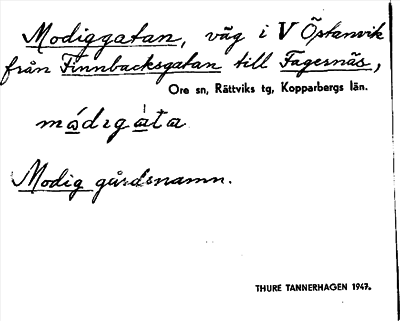 Modiggatan, väg i V Östanvik
från Finnbacksgatan till Fagernäs,
Ore sn, Rättviks tg, Kopparbergs län.
mádıgàta
Modig gårdsnamn.
THURE TANNERHAGEN 1947.